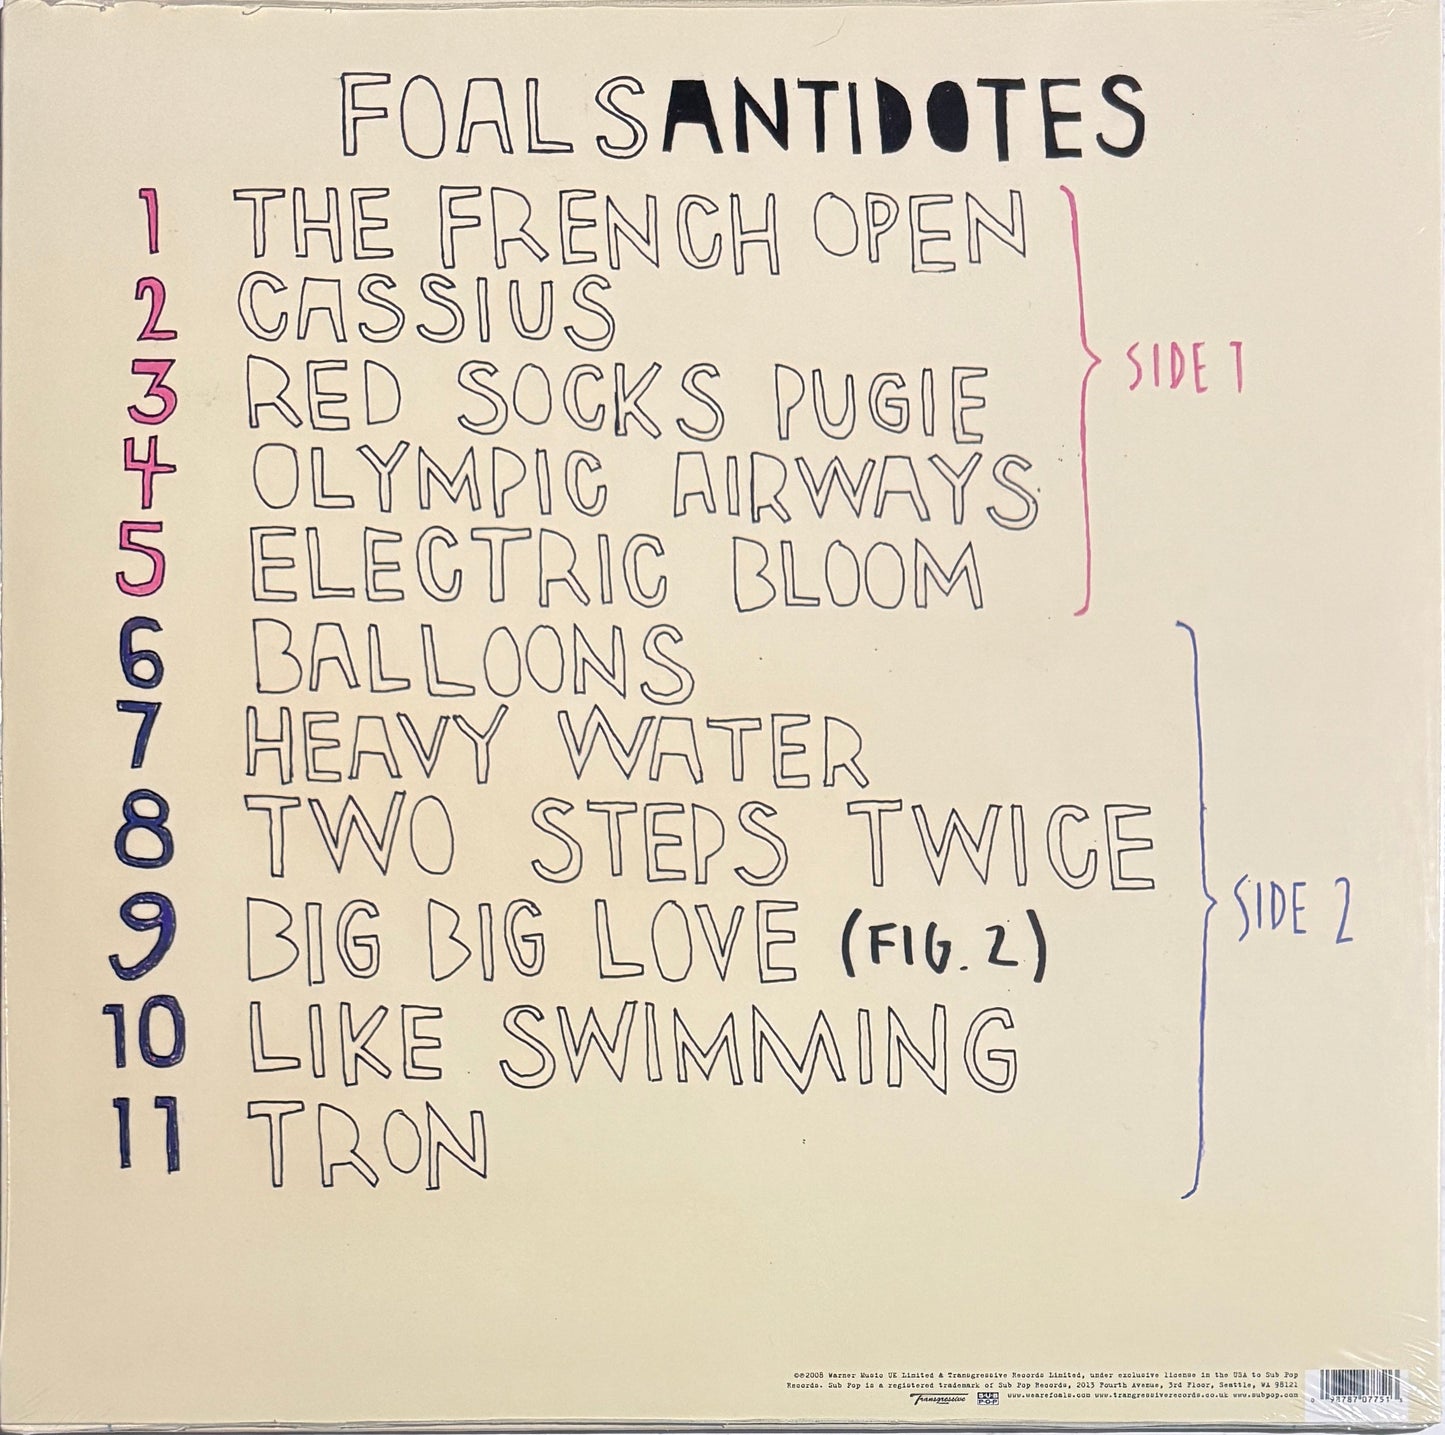 FOALS ANTIDOTES
1 THE FRENCH OPEN
2 CASSIUS
3 RED SOCKS PUGIE
SIDE 1
4 OLYMPIC AIRWAYS
5 ELECTRIC BLOOM
6 BALLOONS
7 HEAVY WATER
8 TWO STEPS TWICE
9 BIG BIG LOVE (FIG. 2)
SIDE 2
10 LIKE SWIMMING
11 TRON
℗©2008 Warner Music UK Limited & Transgressive Records Limited, under exclusive license in the USA to Sub Pop
Records. Sub Pop is a registered trademark of Sub Pop Records, 2013 Fourth Avenue, 3rd Floor, Seattle, WA 98121
Transgressive SUB POP www.wearefoals.com www.trangressiverecords.co.uk www.subpop.com